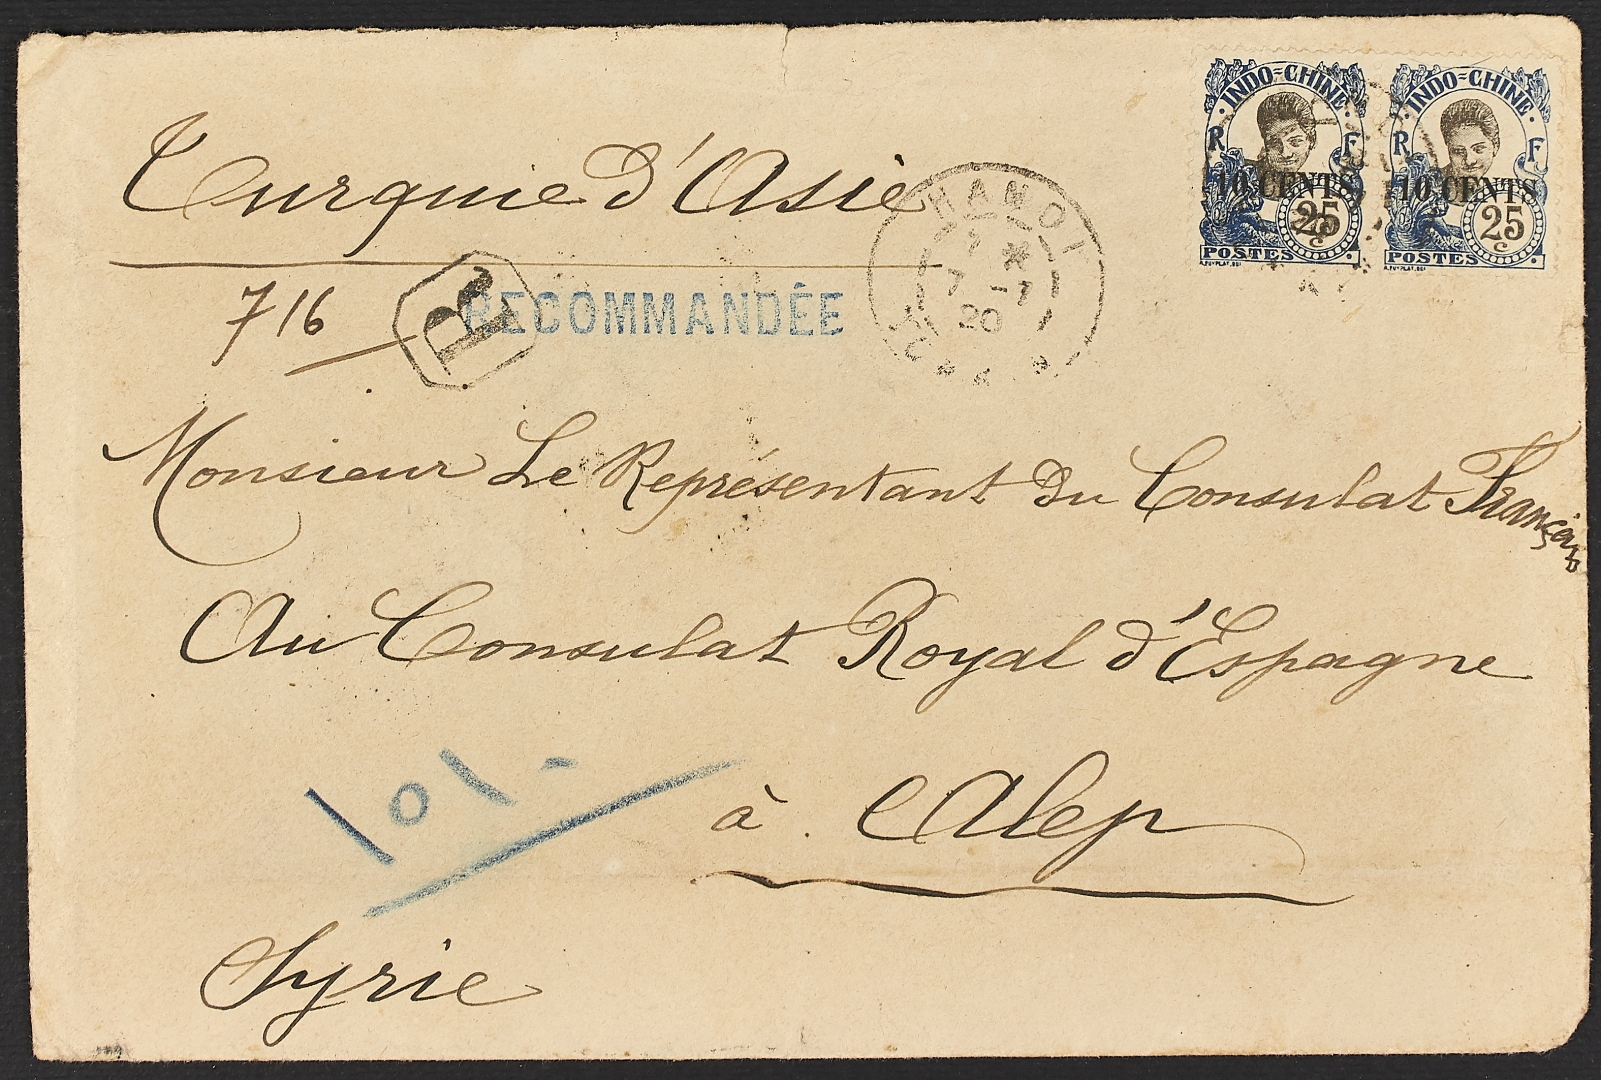 INDO-CHINE
R F
10 CENTS
25 c
POSTES
INDO-CHINE
R F
10 CENTS
25 c
POSTES
Turquie d'Asie
HANOI
7 -7
20
716
R
RECOMMANDÉE
Monsieur Le Représentant Du Consulat Français
Au Consulat Royal d'Espagne
à Alep
Syrie